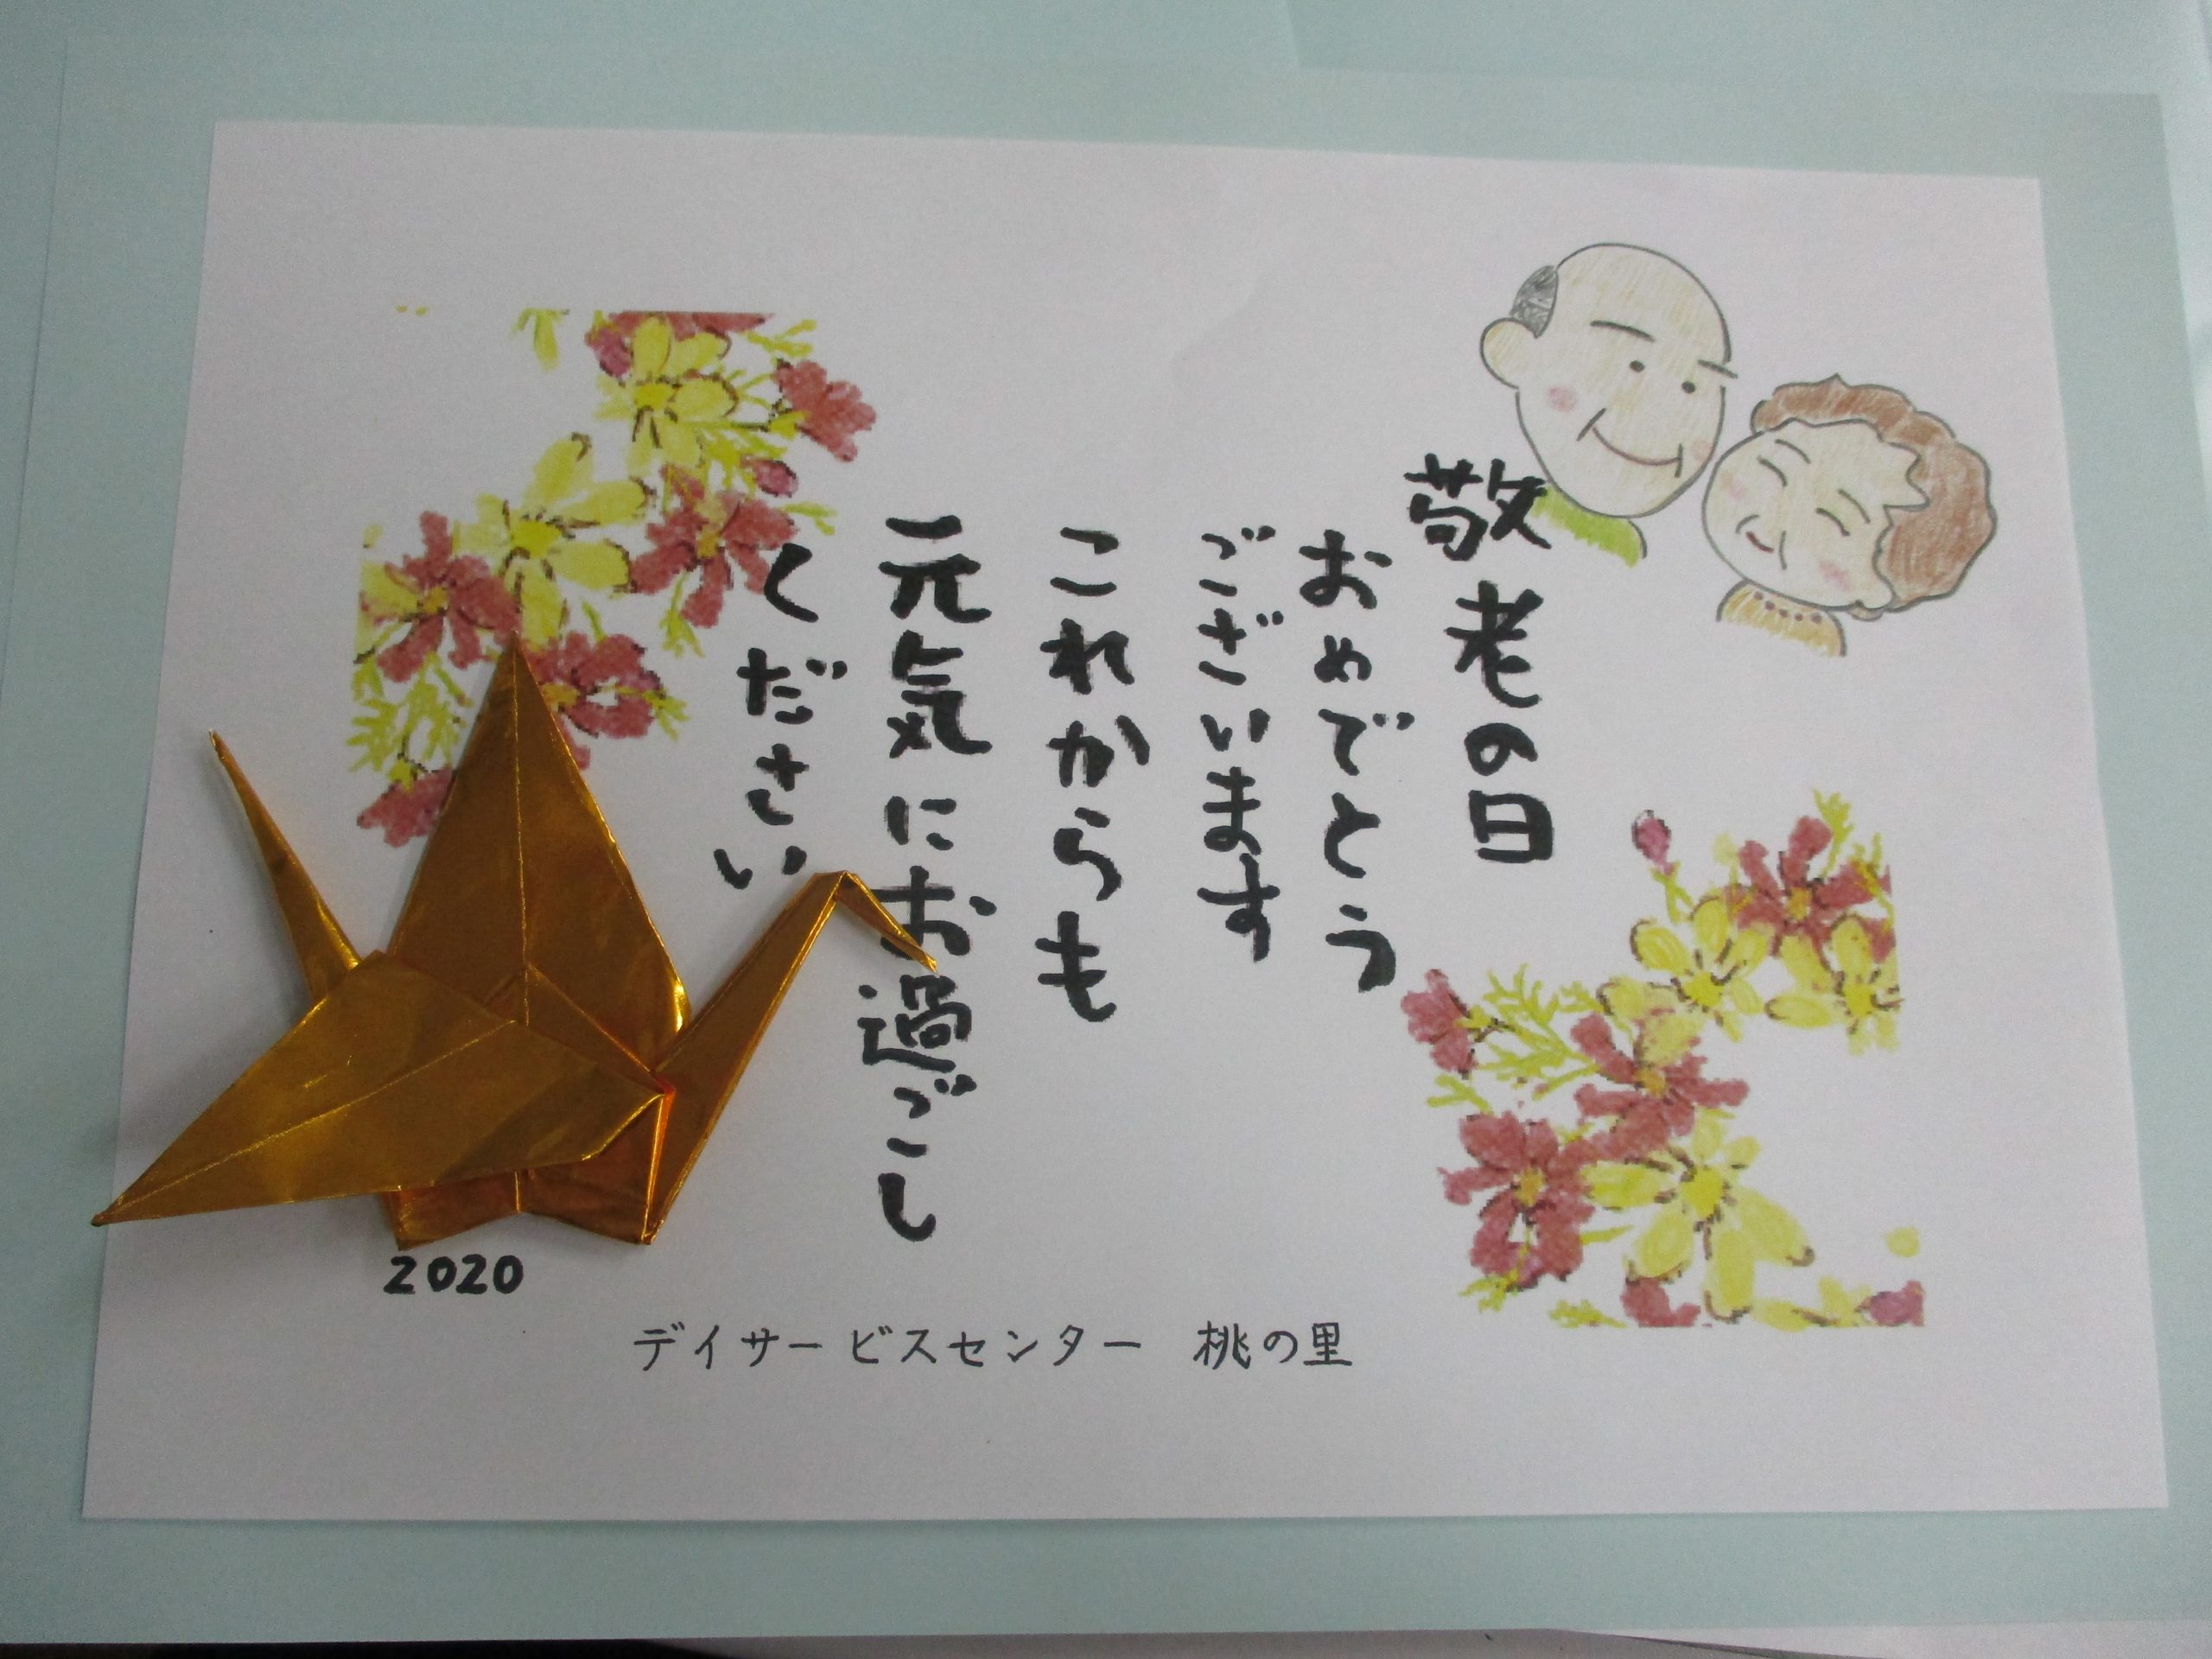 敬老の日
おめでとう
ございます
これからも
元気にお過ごし
ください
2020
デイサービスセンター 桃の里